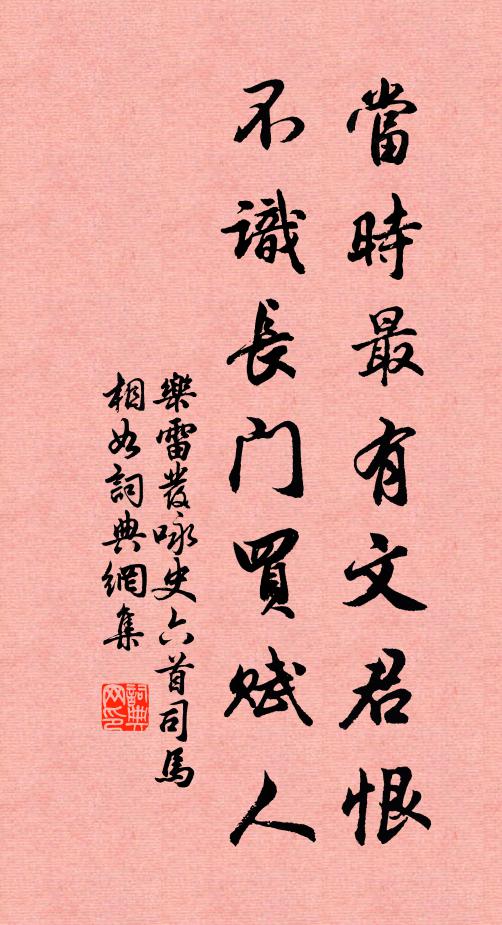 當時最有文君恨
不識長門買賦人
樂雷發咏史六首司馬
相如詞典網集
詞典
网印